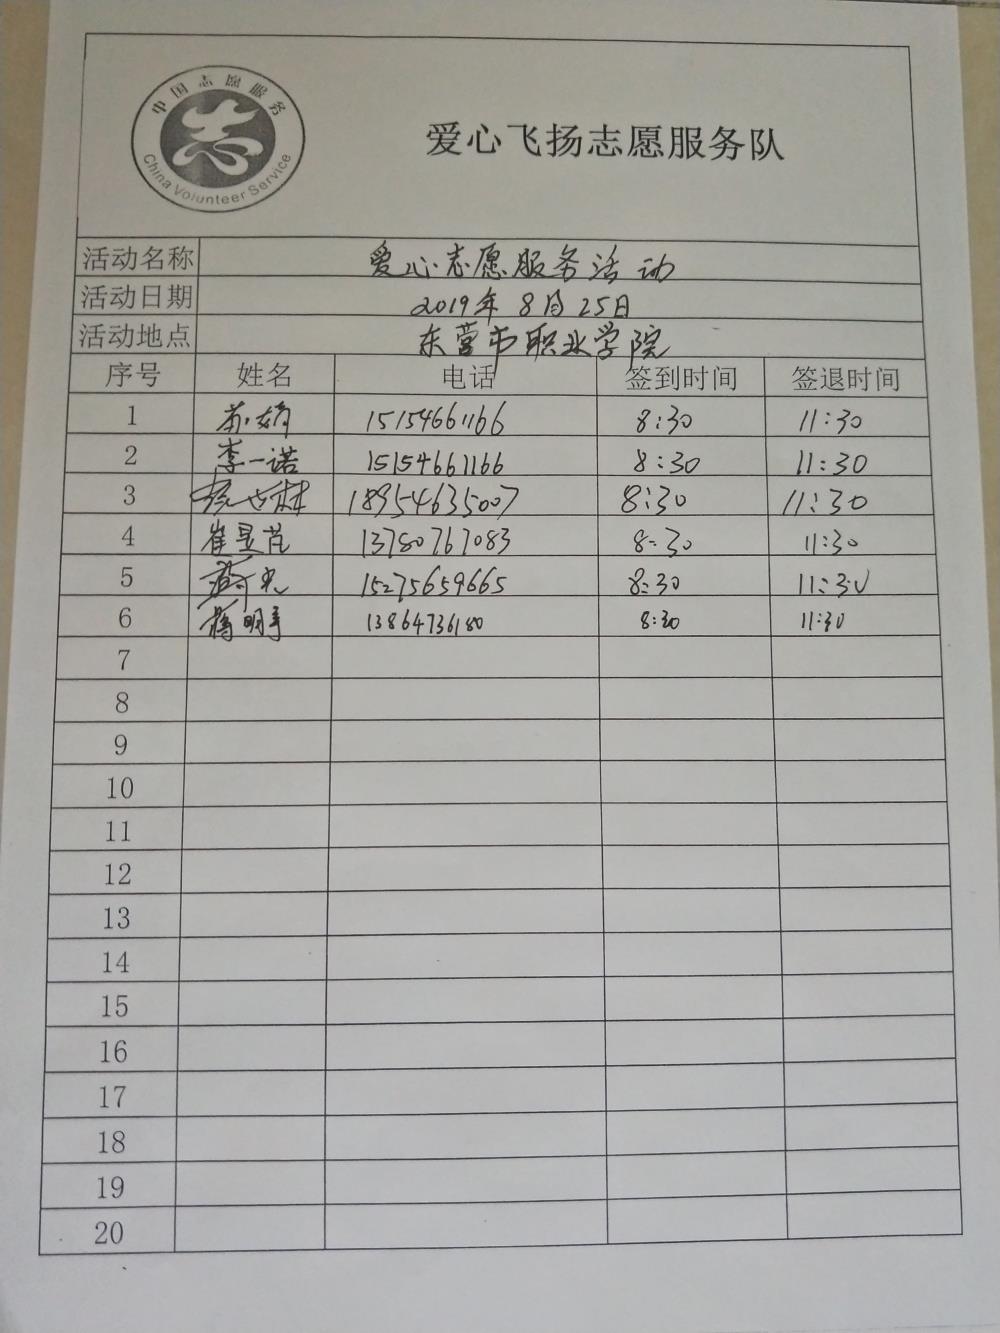 中国志愿服务
China Volunteer Service
爱心飞扬志愿服务队
活动名称 爱心志愿服务活动
活动日期 2019年8月25日
活动地点 东营市职业学院
序号 姓名 电话 签到时间 签退时间
1 15154661166 8:30 11:30
2 李一诺 15154661166 8:30 11:30
3 18954635007 8:30 11:30
4 崔昱范 13780767083 8:30 11:30
5 15275659665 8:30 11:30
6 13864736180 8:30 11:30
7
8
9
10
11
12
13
14
15
16
17
18
19
20